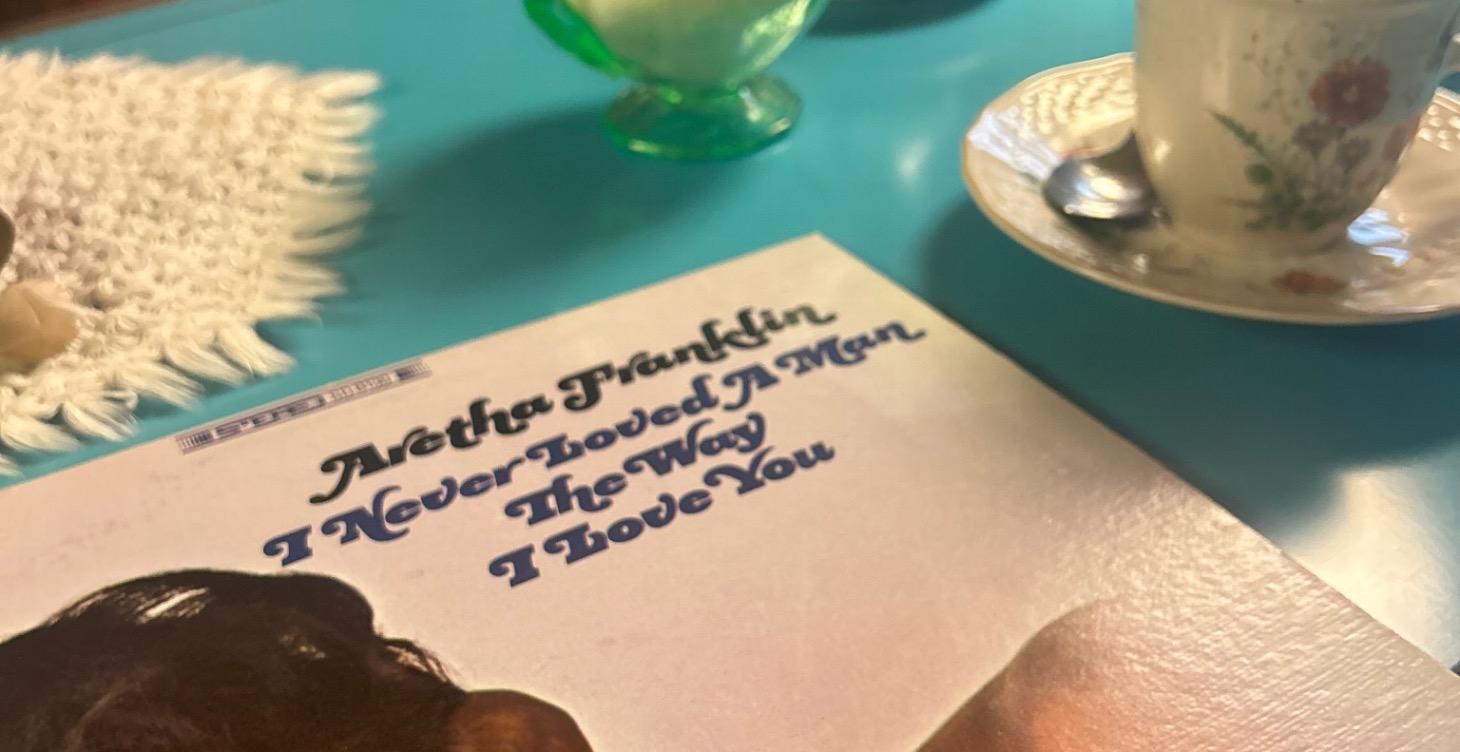 STEREO
Aretha Franklin
I Never Loved A Man
The Way
I Love You